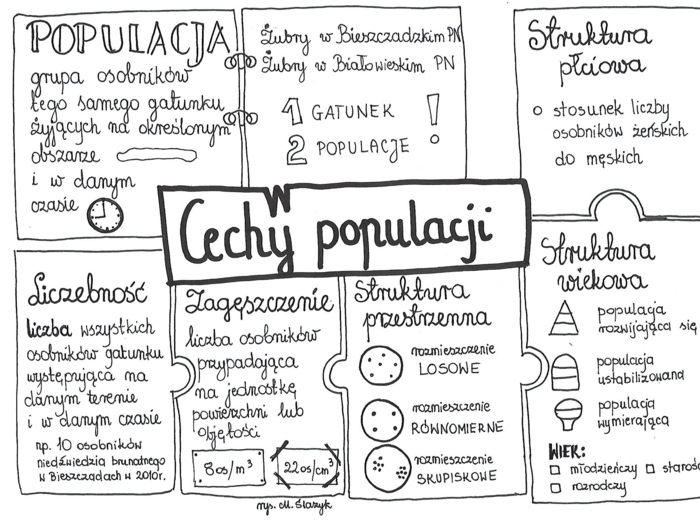 POPULACJA
grupa osobników
tego samego gatunku
żyjących na określonym
obszarze
i w danym
czasie
Żubry w Bieszczadzkim PN
Żubry w Białowieskim PN
1 GATUNEK
2 POPULACJE
!
Struktura
płciowa
stosunek liczby
osobników żeńskich
do męskich
W
Cechy populacji
Liczebność
liczba wszystkich
osobników gatunku
występująca na
danym terenie
i w danym czasie
np. 10 osobników
niedźwiedzia brunatnego
w Bieszczadach w 2010r.
Zagęszczenie
liczba osobników
przypadająca
na jednostkę
powierzchni lub
objętości
8os/m³
22os/cm³
rys. M. Ślązyk
Struktura
przestrzenna
rozmieszczenie
LOSOWE
rozmieszczenie
RÓWNOMIERNE
rozmieszczenie
SKUPISKOWE
Struktura
wiekowa
populacja
rozwijająca się
populacja
ustabilizowana
populacja
wymierająca
WIEK:
młodzieńczy
starość
rozrodczy